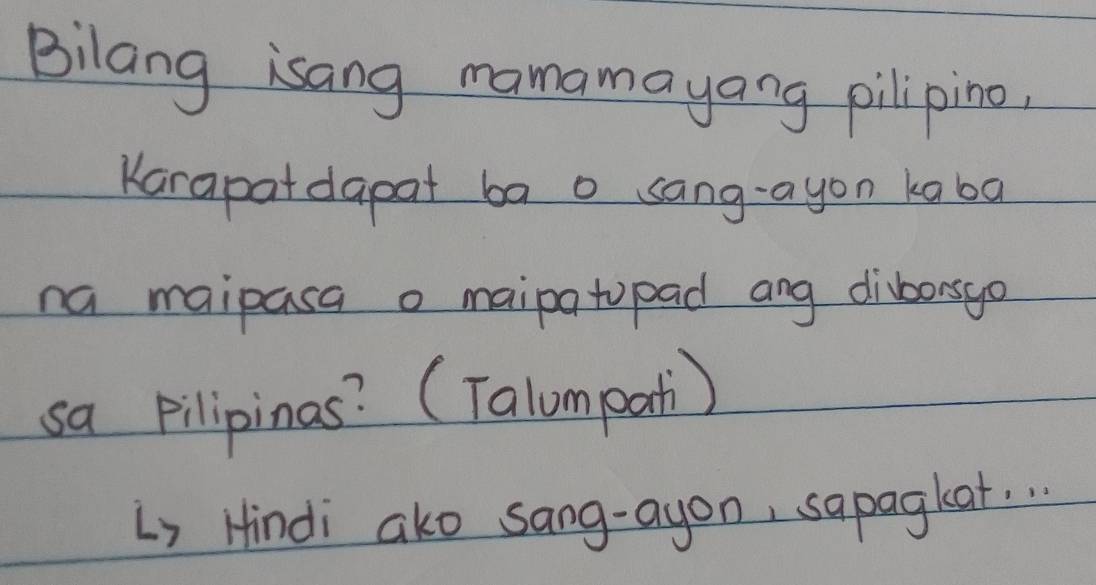 Bilang isang mamamayang pilipino,
Karapatdapat ba o sang-ayon kaba
na maipasa o maipatupad ang diborsyo
sa Pilipinas? (Talumpati)
↳ Hindi ako sang-ayon, sapagkat...